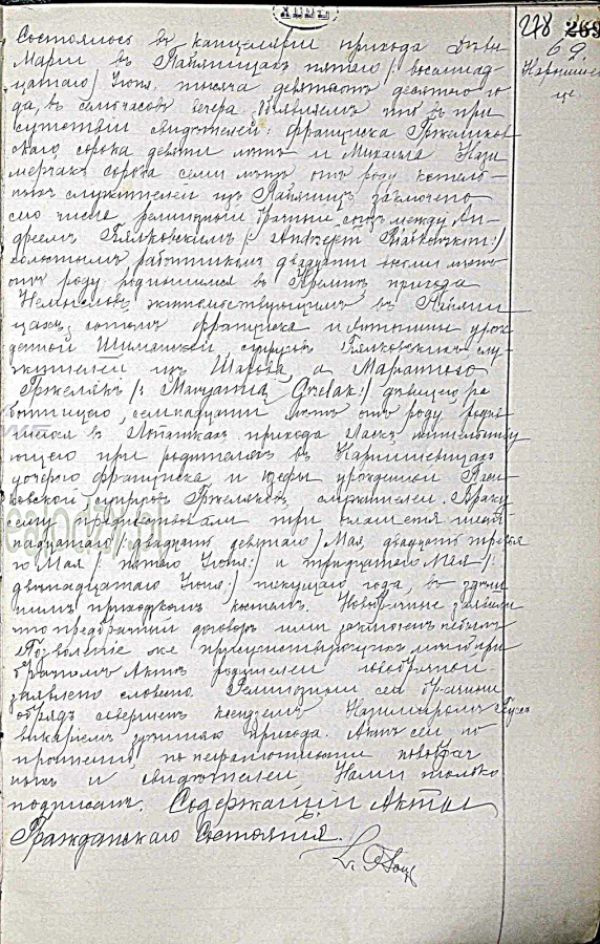 228 269
69
Состоялось в канцелярии прихода Девы
Марии в Пабяницах пятаго /: восемнад-
цатаго/ Июня, тысяча девятьсот десятаго го-
да, в семь часов вечера. Объявляем что в при-
сутствии свидетелей: Франциска Гржеляков-
скаго, сорока девяти лет и Михаила Кази-
мерчак сорока семи лет от роду костель-
ных служителей из Пабяниц заключено
сего числа религиозный брачный союз между Ан-
дреем Бялковским /: Andrzej Białkowski:/
холостым работником двадцати
от роду родившимся в прихода
жительствующим в Пабяни-
цах, сыном Франциска и Антонины урож-
денной Шиманской супругов Бялковских слу-
жителей из а Марянною
Гржеляк /: Maryanna Grzelak:/ девицею ра-
ботницею, семнадцати лет от роду родив-
шеюся в Лопатках прихода Ласк, жительству-
ющею при родителях в Карнишевицах
дочерью Франциска и Юзефы урожденной
супругов Гржеляков, служителей. Браку
сему предшествовали три оглашения шест-
надцатаго /двадцать девятаго/ Мая, двадцать третья-
го Мая /: пятаго Июня:/ и тридцатаго Мая /:
двенадцатаго Июня:/ текущаго года, в здеш-
нем приходском костеле. Новобрачные заявили
что предбрачный договор ими заключен небыл.
Позволение же присутствующих лично при
брачном Акте родителей новобрачной
заявлено словесно. Религиозный сей брачный
обряд совершен ксендзом Казимиром
викарием здешняго прихода. Акт сей по
прочтении, по неграмотности новобрач-
ных и свидетелей Нами только
подписан. Содержащий Акты
Гражданскаго Состояния.